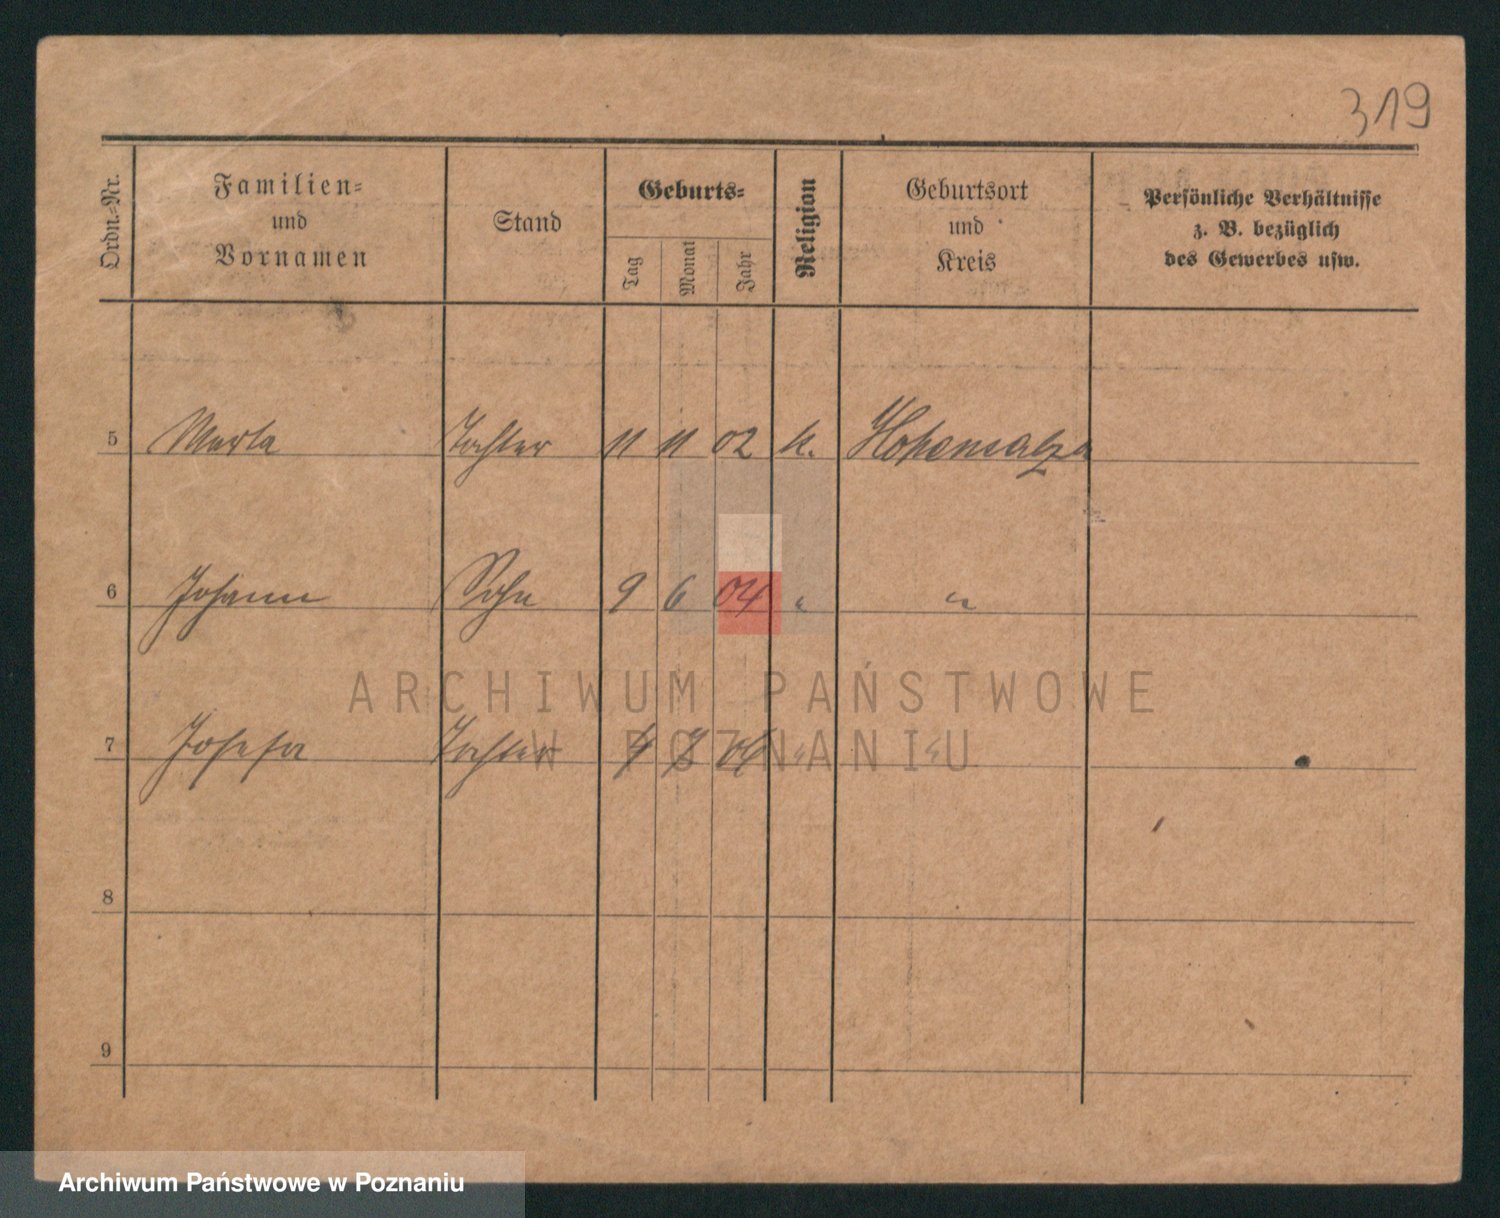 319
Ordn.-Nr.
Familien-
und
Vornamen
Stand
Geburts-
Tag
Monat
Jahr
Religion
Geburtsort
und
Kreis
Persönliche Verhältnisse
z. B. bezüglich
des Gewerbes usw.
5 Marta Tochter 11 11 02 k. Hohensalza
6 Johann Sohn 9 6 04 " "
ARCHIWUM PAŃSTWOWE
W POZNANIU
7 Josefa Tochter 4 3 06 " "
8
9
Archiwum Państwowe w Poznaniu